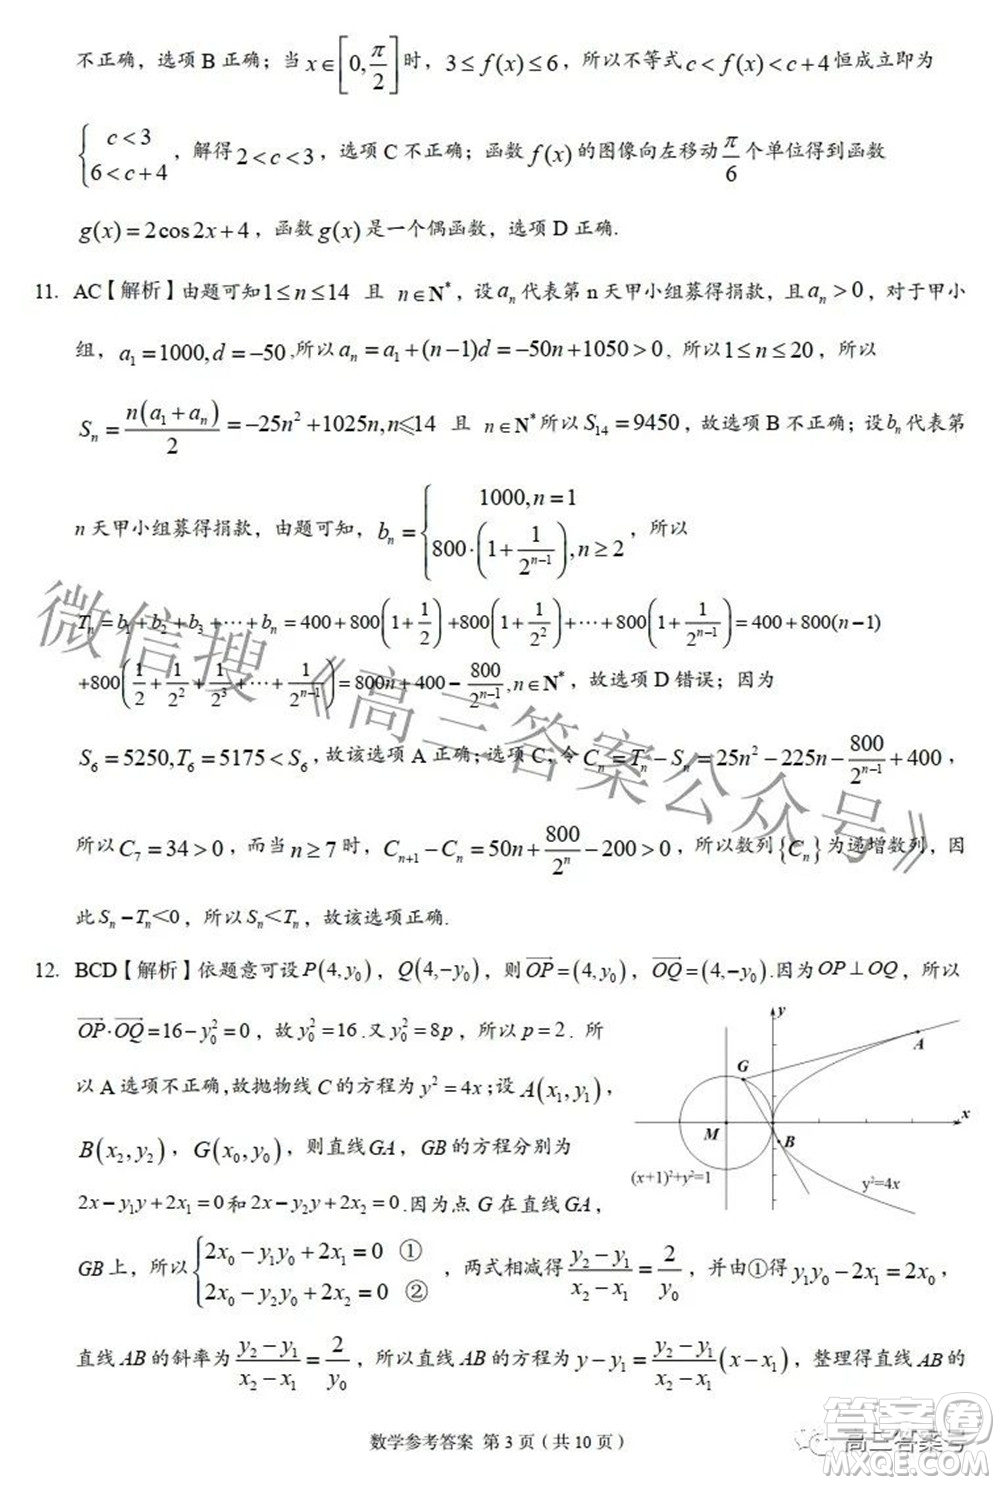 不正确，选项 B 正确；当 x∈[0, π/2] 时，3≤f(x)≤6，所以不等式 c<f(x)<c+4 恒成立即为
{c<3
6<c+4，解得 2<c<3，选项 C 不正确；函数 f(x) 的图像向左移动 π/6 个单位得到函数
g(x)=2cos2x+4，函数 g(x) 是一个偶函数，选项 D 正确.
11. AC【解析】由题可知 1≤n≤14 且 n∈N*，设 aₙ 代表第 n 天甲小组募得捐款，且 aₙ>0，对于甲小
组，a₁=1000,d=-50,所以 aₙ=a₁+(n-1)d=-50n+1050>0，所以 1≤n≤20，所以
Sₙ=n(a₁+aₙ)/2=-25n²+1025n,n≤14 且 n∈N* 所以 S₁₄=9450，故选项 B 不正确；设 bₙ 代表第
n 天甲小组募得捐款，由题可知，bₙ={1000,n=1
800·(1+1/2ⁿ⁻¹),n≥2，所以
Tₙ=b₁+b₂+b₃+···+bₙ=400+800(1+1/2)+800(1+1/2²)+···+800(1+1/2ⁿ⁻¹)=400+800(n-1)
+800(1/2+1/2²+1/2³+···+1/2ⁿ⁻¹)=800n+400-800/2ⁿ⁻¹,n∈N*，故选项 D 错误；因为
S₆=5250,T₆=5175<S₆，故该选项 A 正确；选项 C，令 Cₙ=Tₙ-Sₙ=25n²-225n-800/2ⁿ⁻¹+400，
所以 C₇=34>0，而当 n≥7 时，Cₙ₊₁-Cₙ=50n+800/2ⁿ-200>0，所以数列{Cₙ}为递增数列，因
此 Sₙ-Tₙ<0，所以 Sₙ<Tₙ，故该选项正确.
12. BCD【解析】依题意可设 P(4,y₀)，Q(4,-y₀)，则 OP→=(4,y₀)，OQ→=(4,-y₀).因为 OP⊥OQ，所以
OP→·OQ→=16-y₀²=0，故 y₀²=16.又 y₀²=8p，所以 p=2．所
以 A 选项不正确,故抛物线 C 的方程为 y²=4x；设 A(x₁,y₁)，
B(x₂,y₂)，G(x₀,y₀)，则直线 GA，GB 的方程分别为
2x-y₁y+2x₁=0 和 2x-y₂y+2x₂=0.因为点 G 在直线 GA，
GB 上，所以{2x₀-y₁y₀+2x₁=0 ①
2x₀-y₂y₀+2x₂=0 ②，两式相减得 (y₂-y₁)/(x₂-x₁)=2/y₀，并由①得 y₁y₀-2x₁=2x₀，
直线 AB 的斜率为 (y₂-y₁)/(x₂-x₁)=2/y₀，所以直线 AB 的方程为 y-y₁=(y₂-y₁)/(x₂-x₁)(x-x₁)，整理得直线 AB 的
y
A
G
x
M
B
(x+1)²+y²=1
y²=4x
数学参考答案 第 3 页（共 10 页）
微信搜《高三答案公众号》
高三答案号
答案卷
MXQE.COM